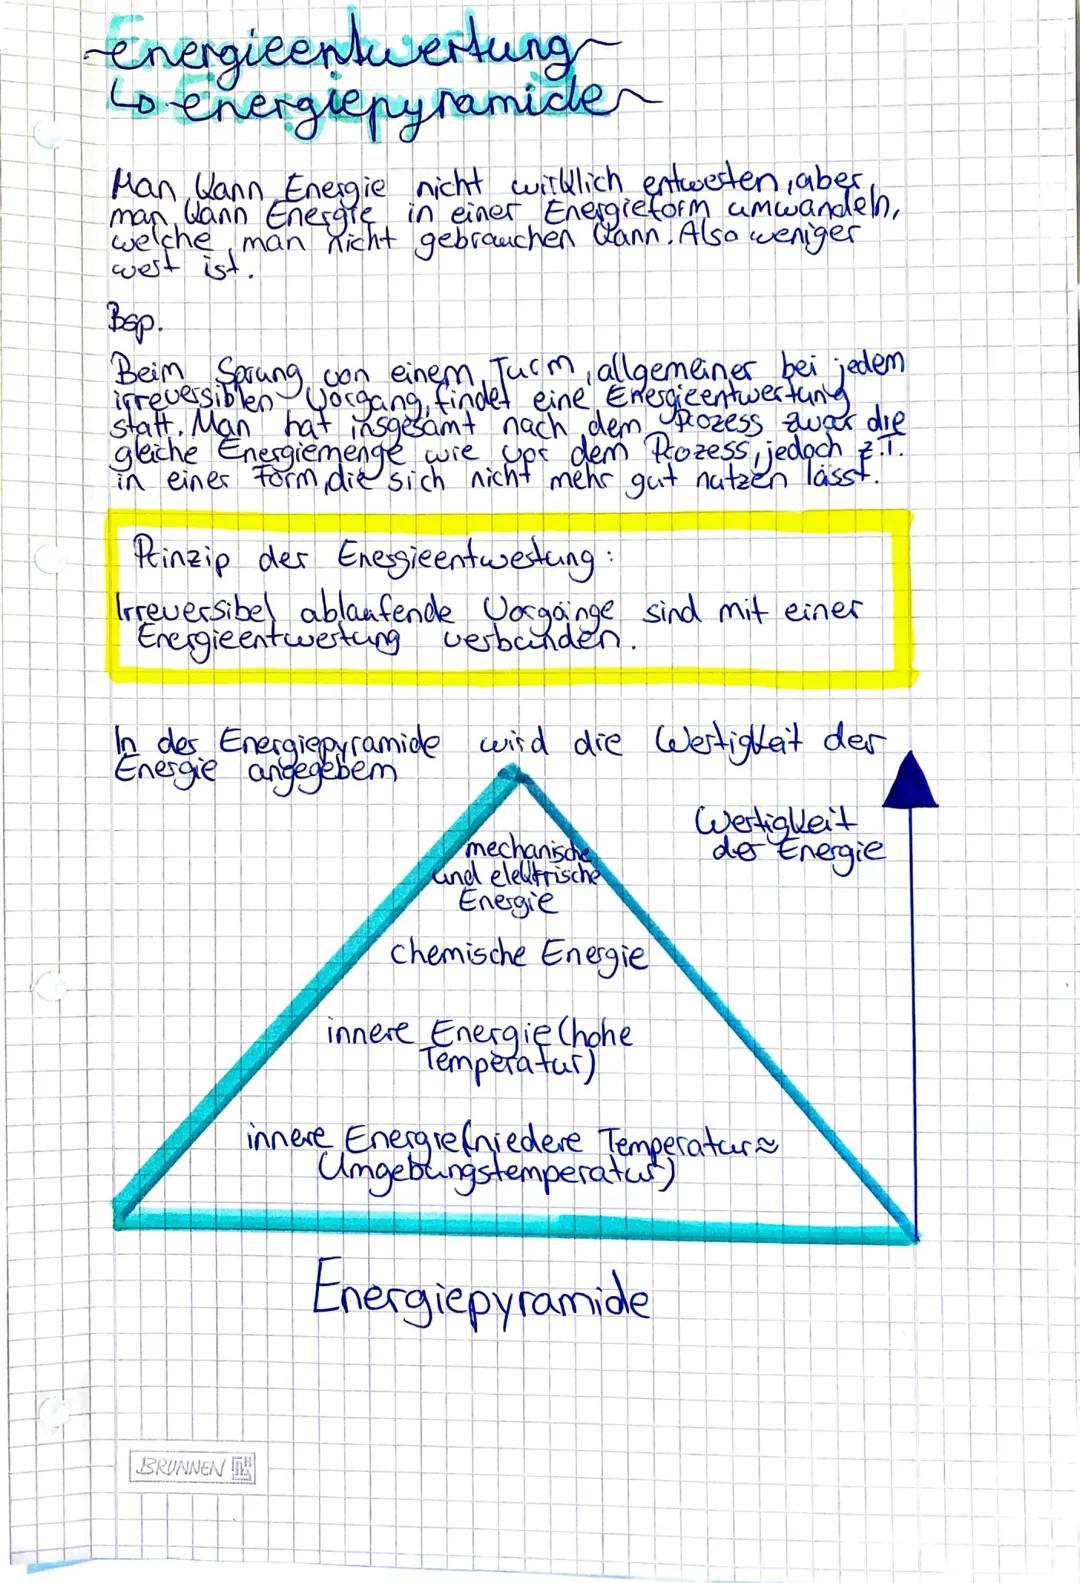 ~Energieentwertung~
↳ Energiepyramide~
Man kann Energie nicht wirklich entwerten, aber
man kann Energie in einer Energieform umwandeln,
welche man nicht gebrauchen kann. Also weniger
wert ist.
Bsp.
Beim Sprung von einem Turm, allgemeiner bei jedem
irreversiblen Vorgang, findet eine Energieentwertung
statt. Man hat insgesamt nach dem Prozess zwar die
gleiche Energiemenge wie vor dem Prozess, jedoch z.T.
in einer Form, die sich nicht mehr gut nutzen lässt.
Prinzip der Energieentwertung:
Irreversibel ablaufende Vorgänge sind mit einer
Energieentwertung verbunden.
In der Energiepyramide wird die Wertigkeit der
Energie angegebem
Wertigkeit
der Energie
mechanische
und elektrische
Energie
chemische Energie
innere Energie (hohe
Temperatur)
innere Energie (niedere Temperatur ≈
Umgebungstemperatur)
Energiepyramide
BRUNNEN